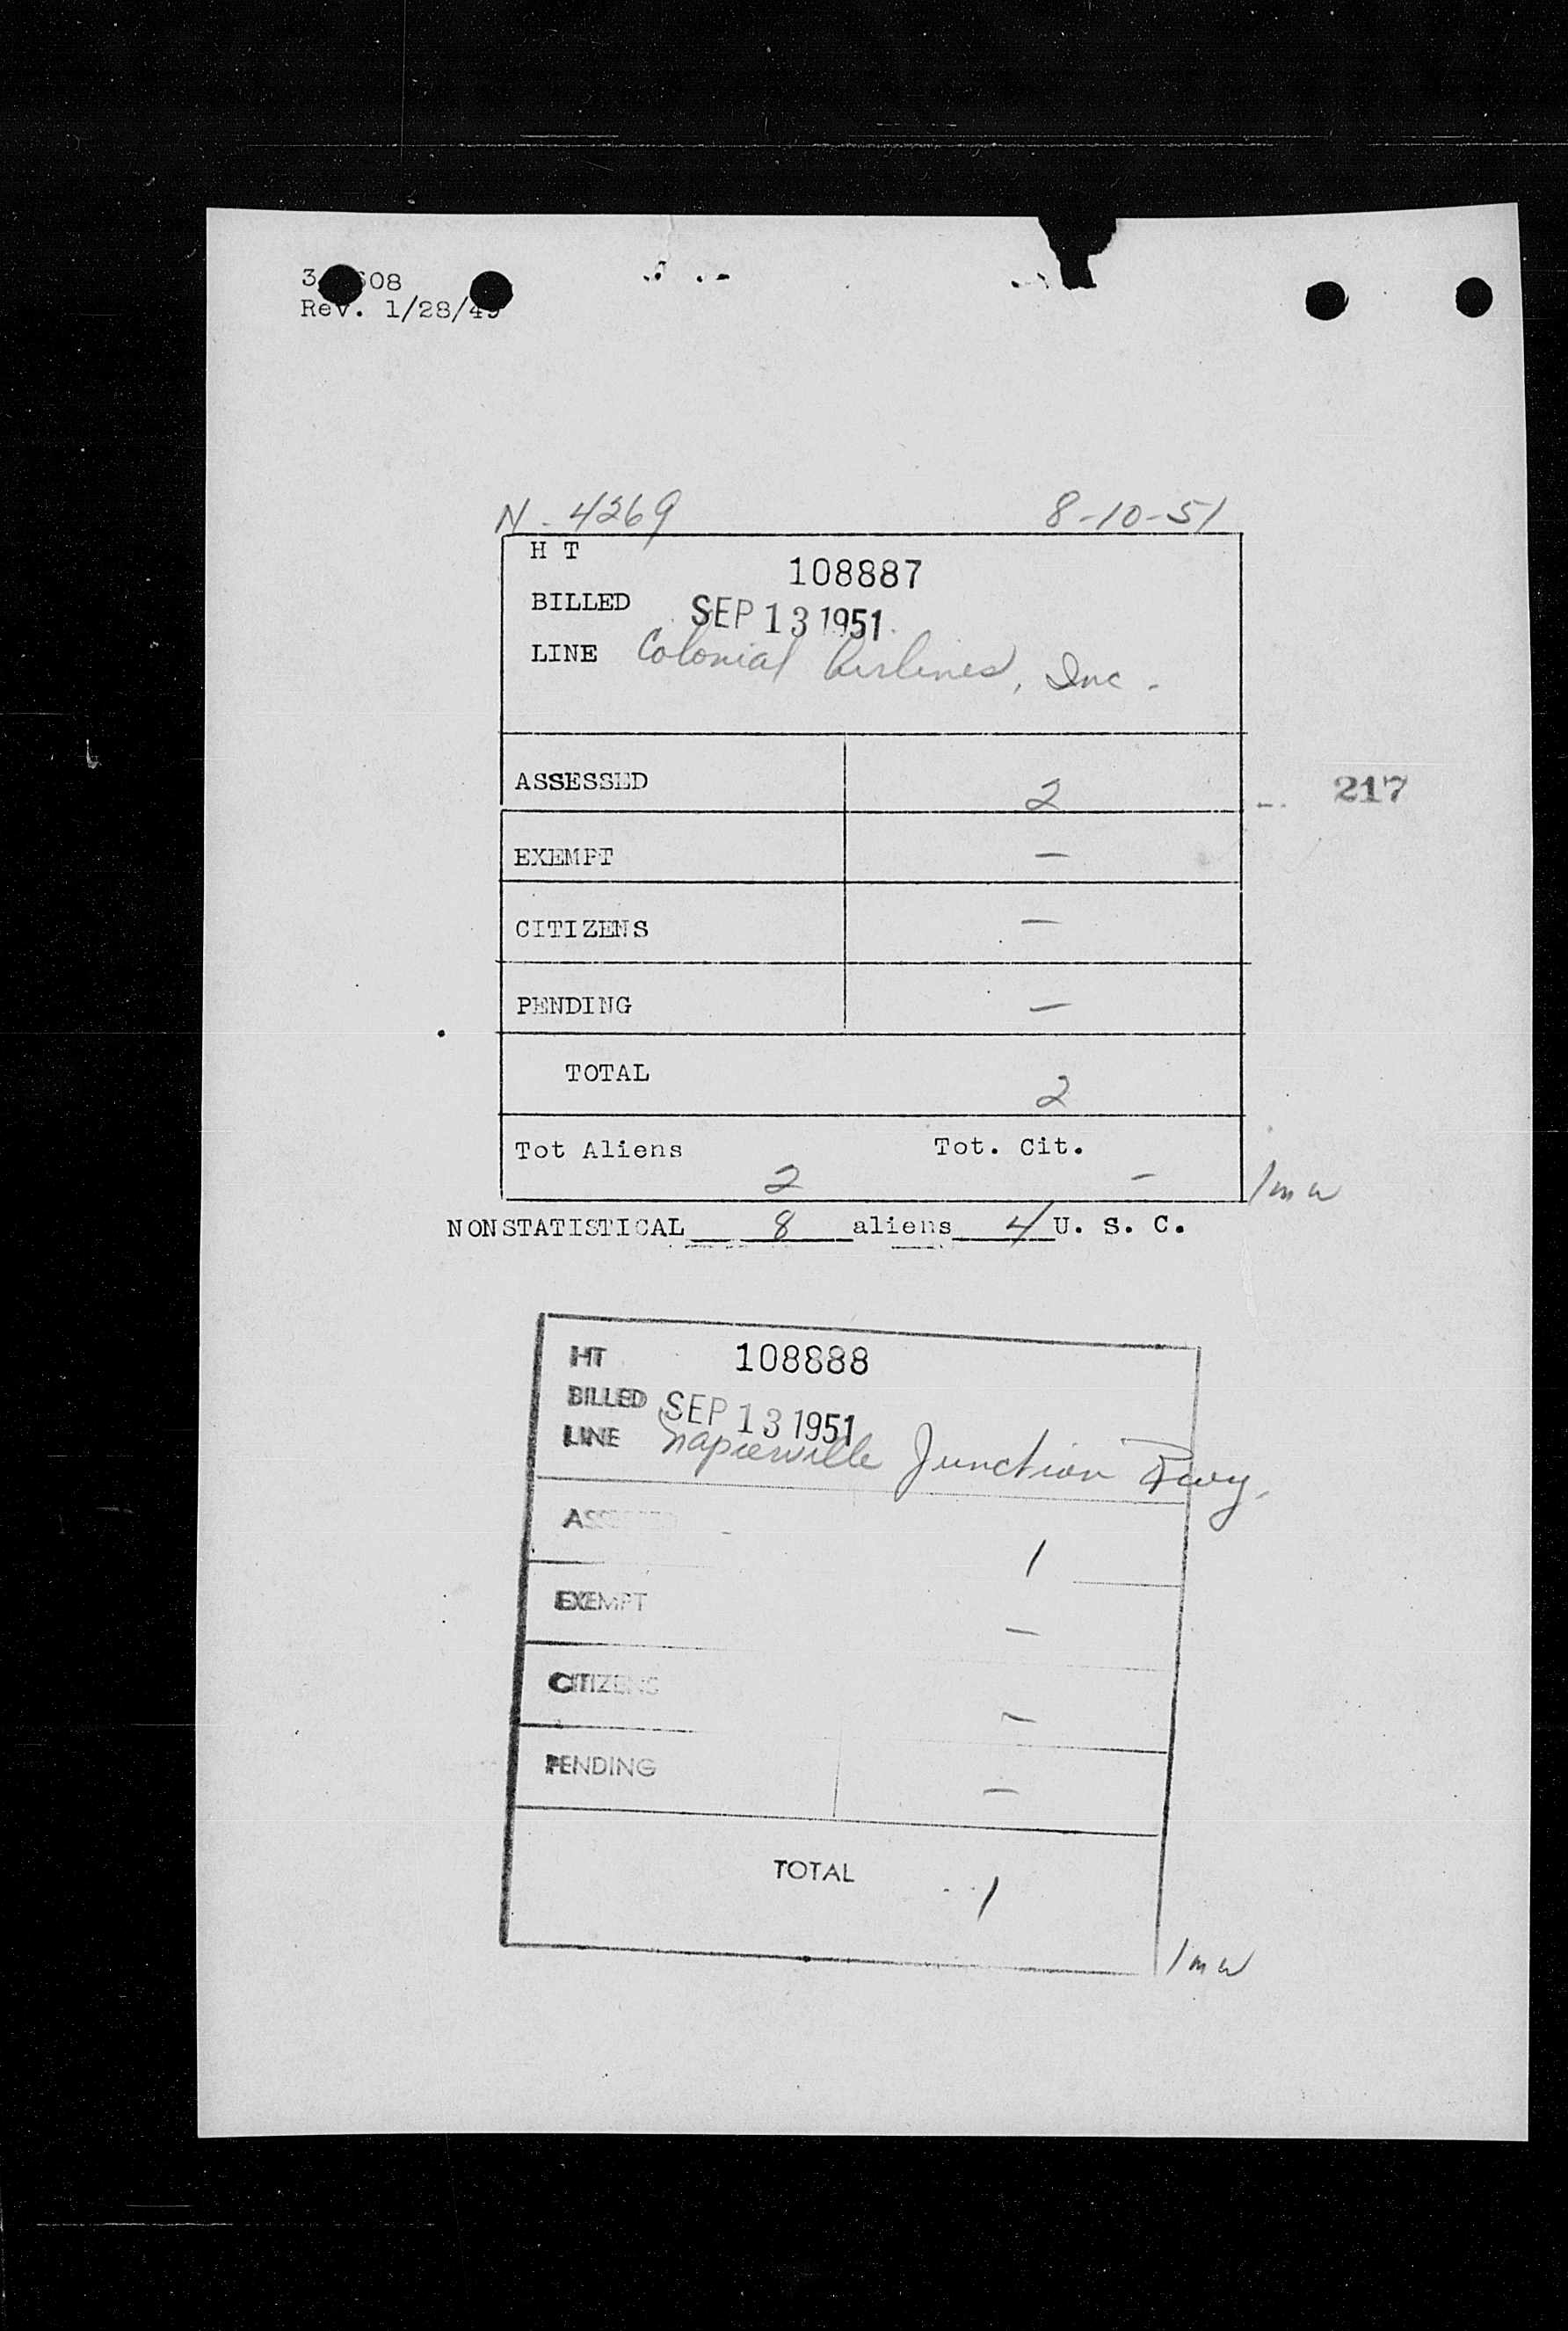 608
Rev. 1/28/49
N-4269 8-10-51
H T 108887
BILLED SEP 13 1951
LINE Colonial Airlines, Inc.
ASSESSED 2 217
EXEMPT —
CITIZENS —
PENDING —
TOTAL 2
Tot Aliens 2 Tot. Cit. -
lmw
NONSTATISTICAL 8 aliens 4 U. S. C.
HT 108888
BILLED SEP 13 1951
LINE Napierville Junction Rwy.
ASSESSED 1
EXEMPT —
CITIZENS —
PENDING —
TOTAL 1
lmw